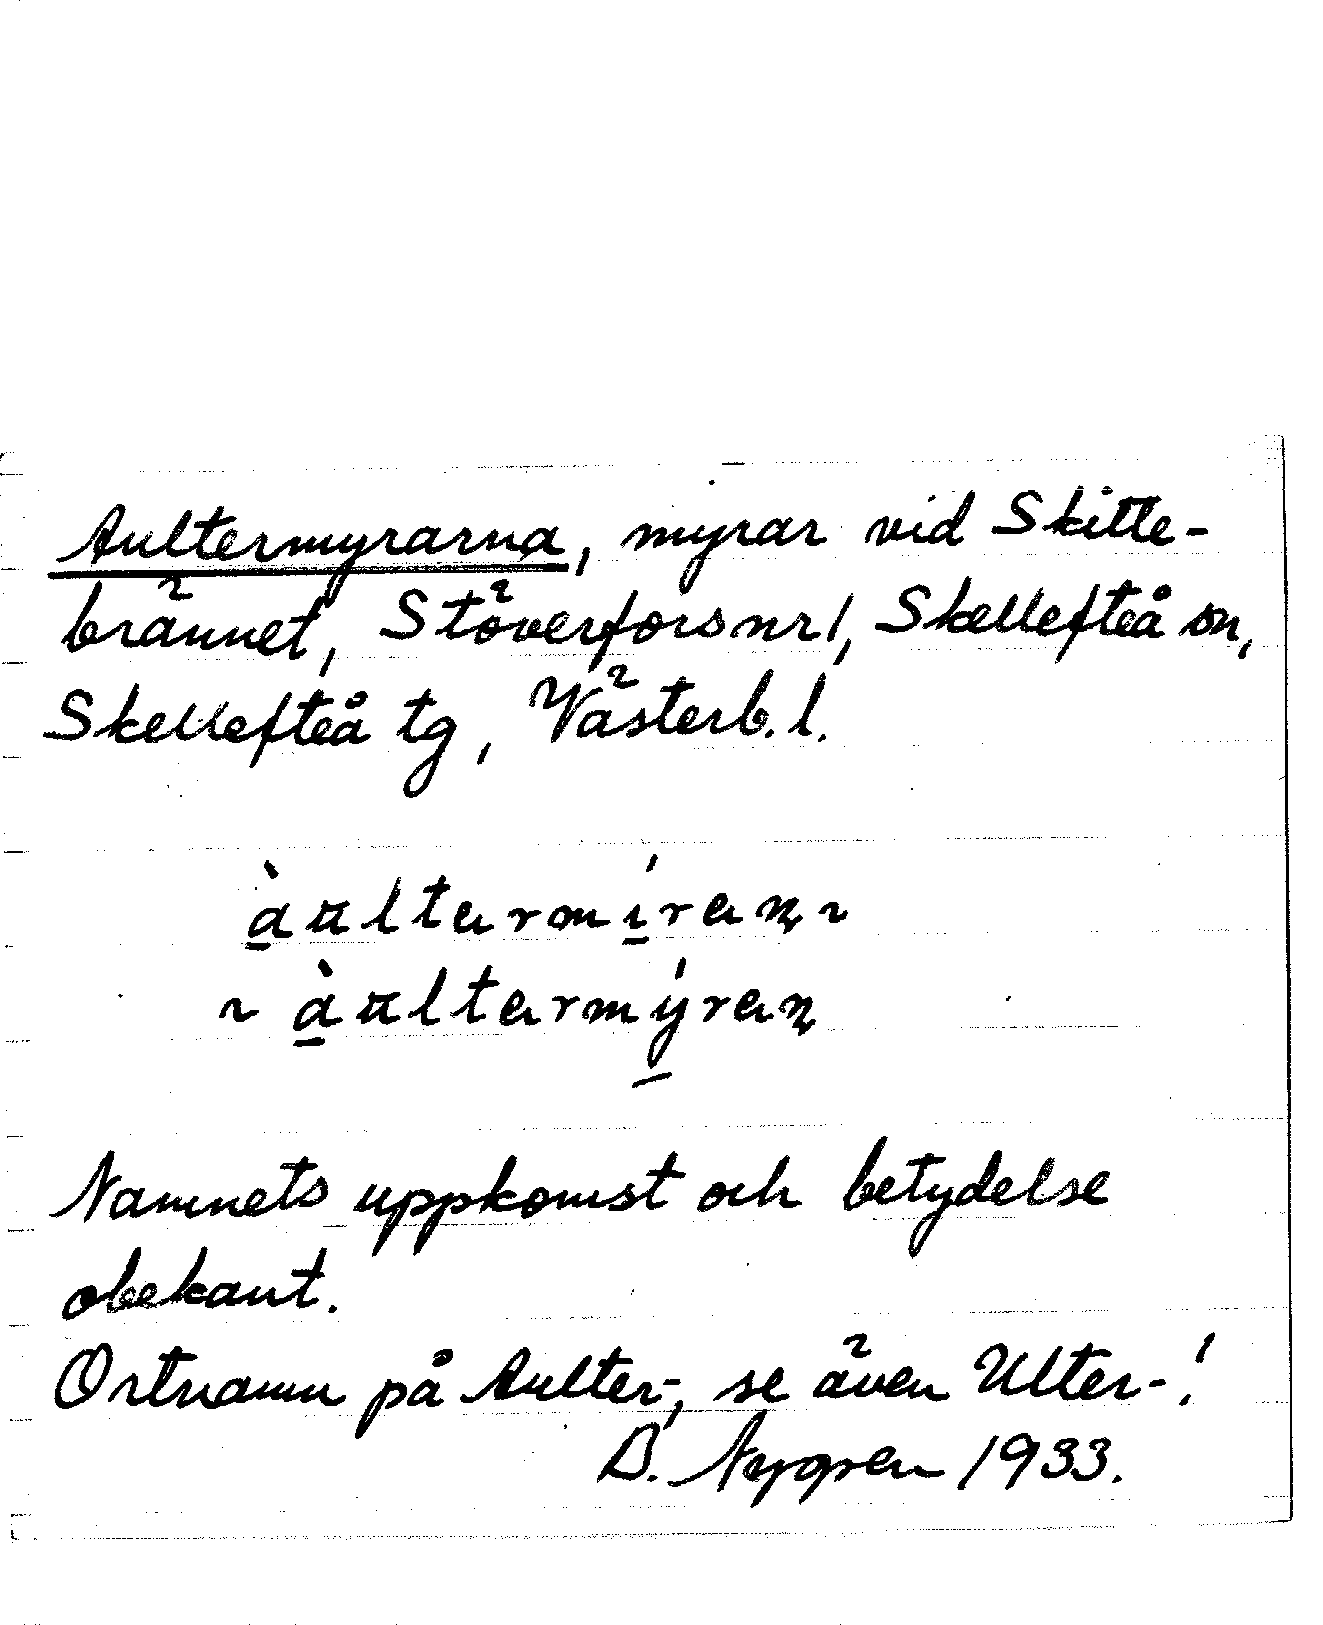 Aultermyrarna, myrar vid Skitte-
brännet, Stöverfors nr 1, Skellefteå sn,
Skellefteå tg, Västerb. l.
Namnets uppkomst och betydelse
obekant.
Ortnamn på Aulter-, se även Ulter-!
D. Nygren 1933.